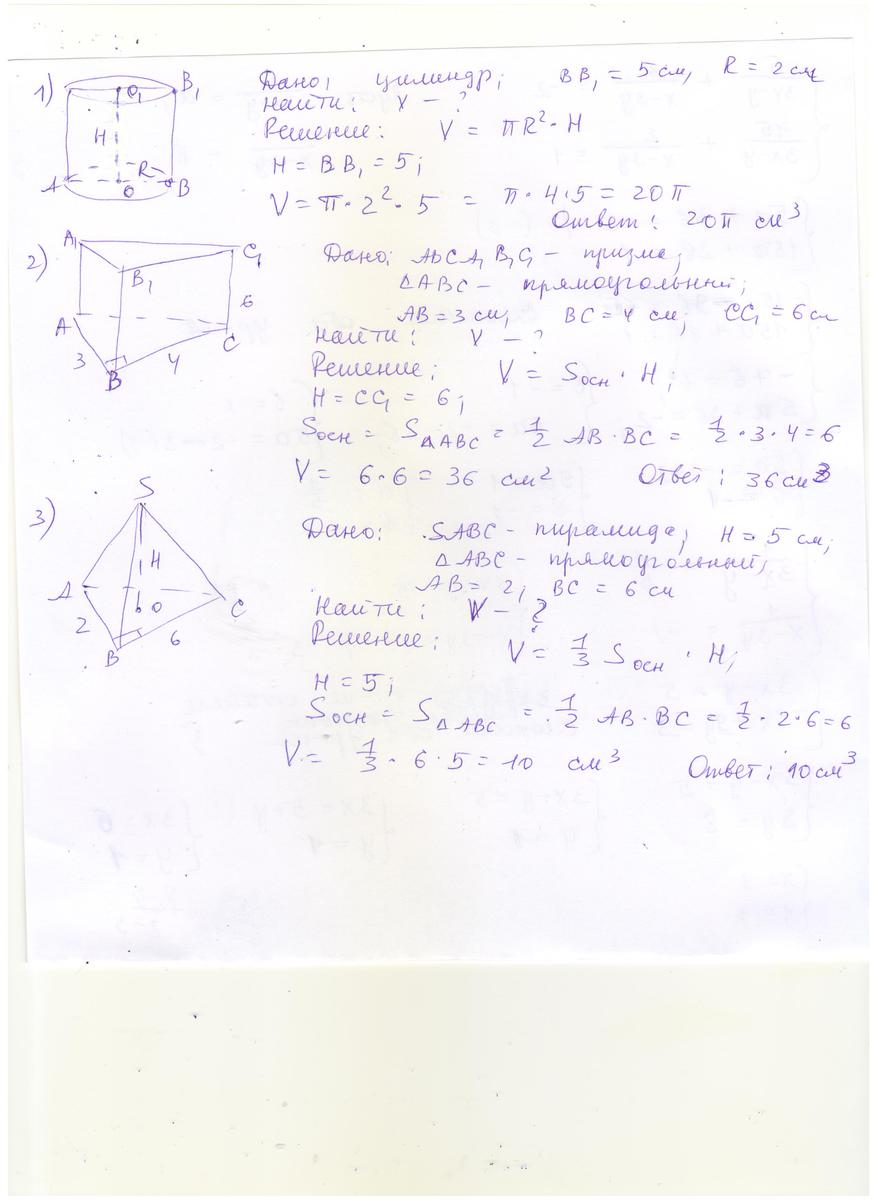 1) Дано: цилиндр; BB₁ = 5 см, R = 2 см
Найти: х - ?
Решение: V = πR² · H
H = BB₁ = 5;
V = π · 2² · 5 = π · 4 · 5 = 20π
Ответ: 20π см³
A B B₁ O₁ O H R
2) Дано: ABCA₁B₁C₁ - призма;
△ABC - прямоугольный;
AB = 3 см; BC = 4 см; CC₁ = 6 см
Найти: V - ?
Решение; V = Sосн · H;
H = CC₁ = 6;
Sосн = S△ABC = 1/2 AB · BC = 1/2 · 3 · 4 = 6
V = 6 · 6 = 36 см² Ответ: 36 см³
A₁ C₁ B₁ 6 A C 3 4 B
3) Дано: SABC - пирамида; H = 5 см;
△ABC - прямоугольный;
AB = 2, BC = 6 см
Найти: V - ?
Решение: V = 1/3 Sосн · H;
H = 5;
Sосн = S△ABC = 1/2 AB · BC = 1/2 · 2 · 6 = 6
V = 1/3 · 6 · 5 = 10 см³ Ответ: 10 см³
S H A O C 2 6 B